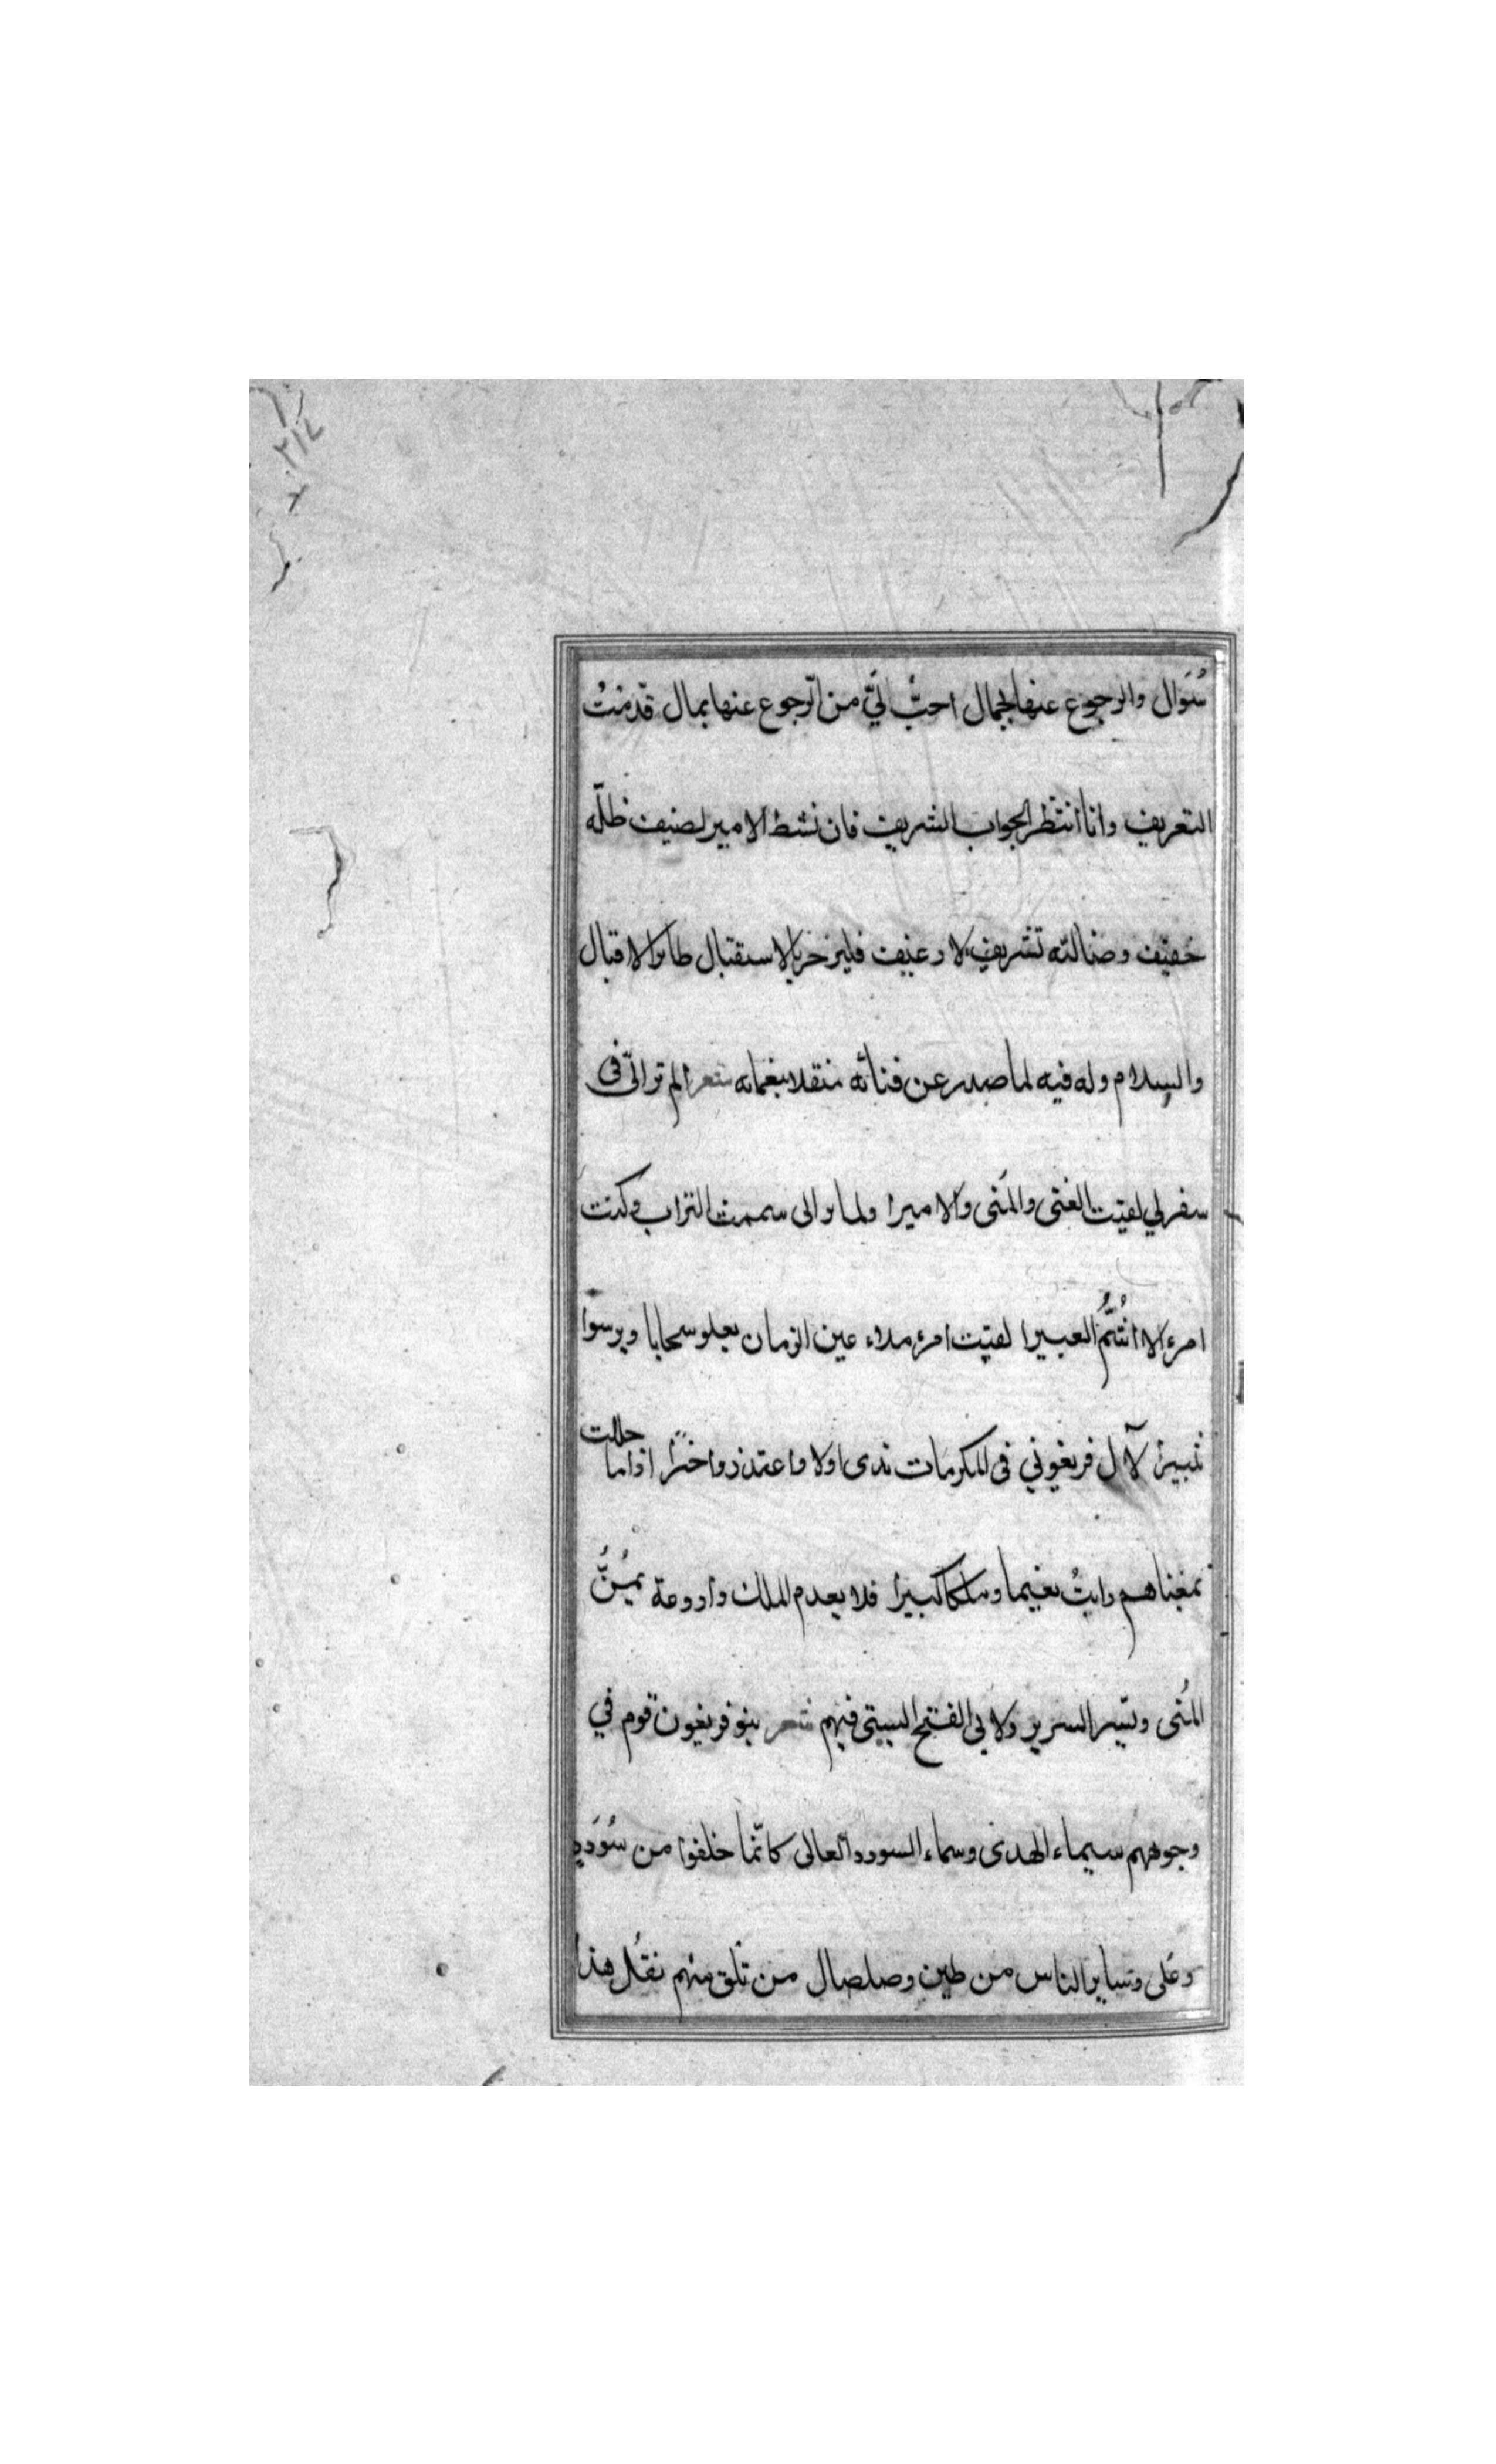 ٢١٤
سُؤال والرجوع عنها بجمال احبّ اليّ من الرّجوع عنها بمال قدّمتُ
التعريف وانا انتظر الجواب الشريف فان نشط الامير لضيف ظلّه
خفيف وضالته تشريف لا رغيف فليزجر بالاستقبال طائر الاقبال
والسلام وله فيه لما صدر عن فنائه مثقلا بنعمائه شعر الم تر انّي فى
سفرلي لقيت الغنى والمُنى والاميرا ولما تراائى سممت التراب وكنت
امرء لا اشُمُّ العبيرا لقيت امرء ملاء عين الزمان يعلو سحابا ويرسوا
ثبيرا لآل فريغون في المكرمات ندى اولا واعتذار اخيرا اذا ما حللت
بمغناهم رايتُ نعيما وملكا كبيرا فلا يعدم الملك واروعة يمُنُّ
المُنى ويسّر السرير ولابي الفتح البستى فيهم شعر بنو فريغون قوم في
وجوههم سيماء الهدى وسماء السودد العالى كانّما خلقوا من سُودَدٍ
وعُلى وساير الناس من طين وصلصال من تلق منهم تقُل هذا